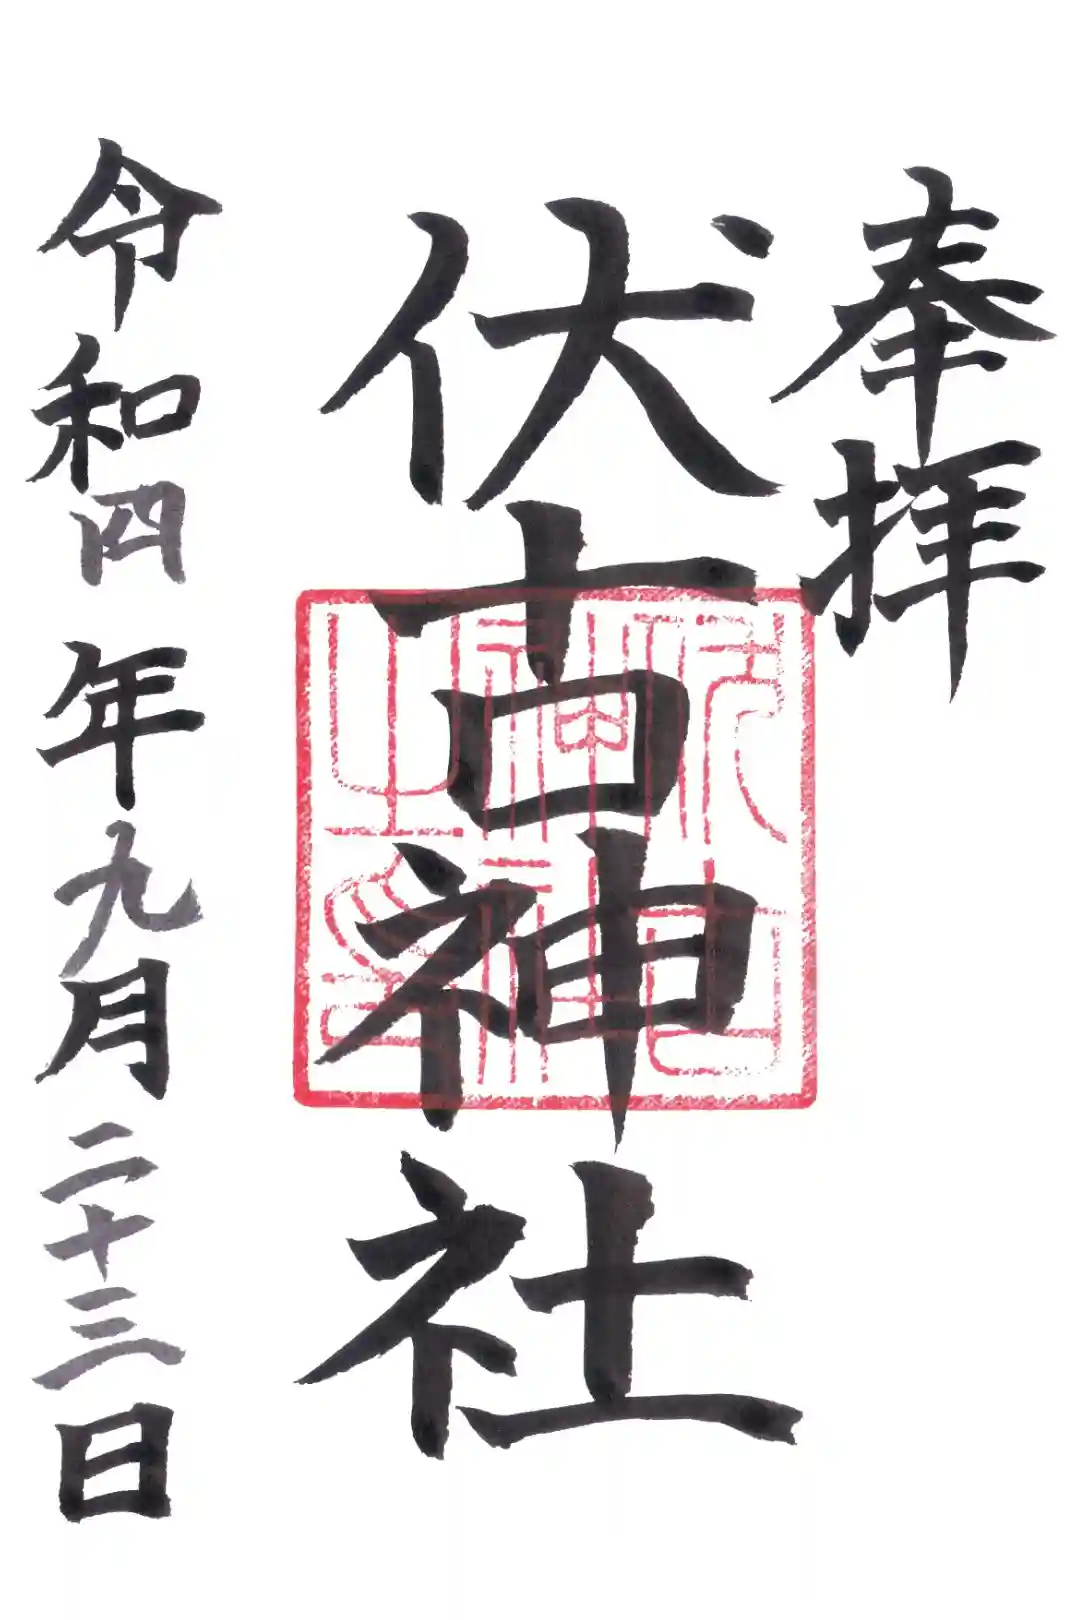 奉拝
伏古神社
伏古神社之印
令和四年九月二十三日